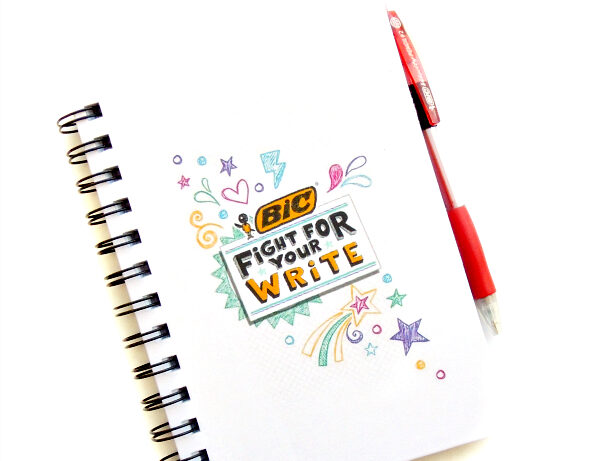 BiC
FiGHT FOR
YOUR
WRiTE